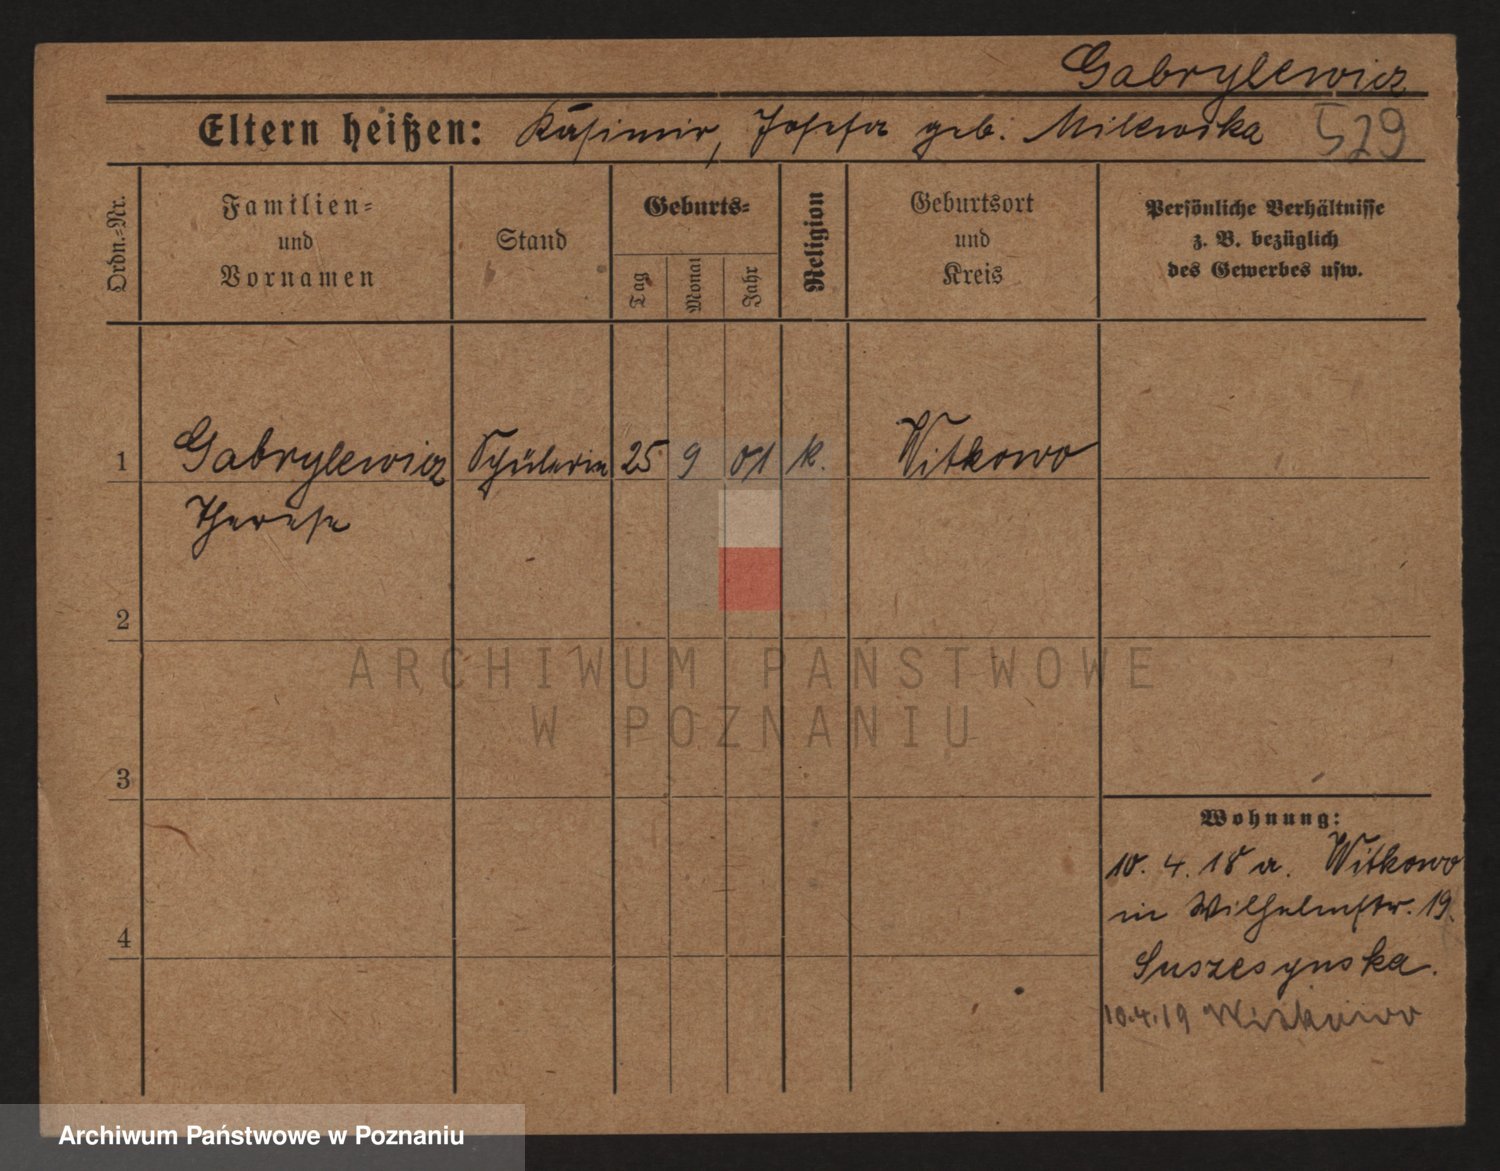 Gabrylewicz
Eltern heißen: Kasimir, Josefa geb. Milewska 529
Ordn.-Nr.
Familien-
und
Vornamen
Stand
Geburts-
Tag
Monat
Jahr
Religion
Geburtsort
und
Kreis
Persönliche Verhältnisse
z. B. bezüglich
des Gewerbes usw.
1 Gabrylewicz Schülerin 25 9 01 k. Witkowo
Therese
2
3
4
Wohnung:
10. 4. 18 a. Witkowo
in Wilhelmstr. 19.
10.4.19 Witkowo
ARCHIWUM PAŃSTWOWE
W POZNANIU
Archiwum Państwowe w Poznaniu